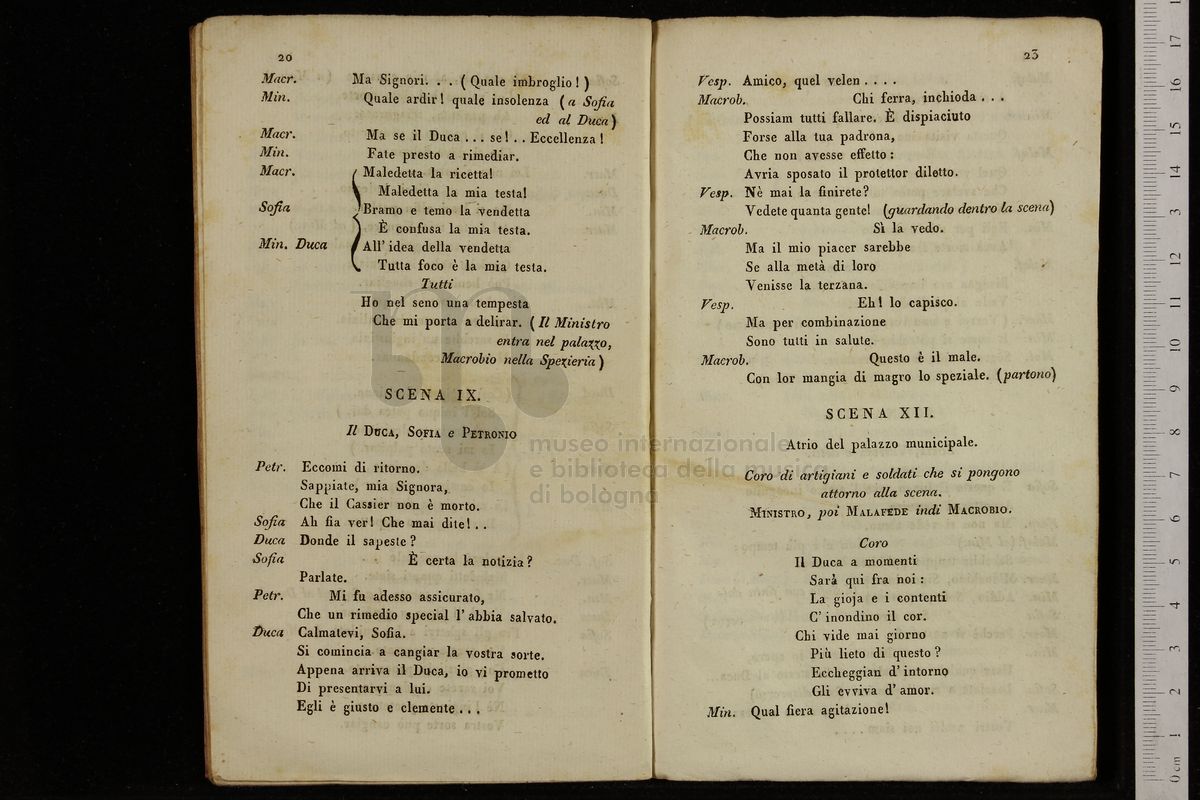 20
Macr. Ma Signori. . . ( Quale imbroglio ! )
Min. Quale ardir! quale insolenza ( a Sofia
ed al Duca )
Macr. Ma se il Duca ... se! . . Eccellenza !
Min. Fate presto a rimediar.
Macr. Maledetta la ricetta!
Maledetta la mia testa!
Sofia Bramo e temo la vendetta
È confusa la mia testa.
Min. Duca All' idea della vendetta
Tutta foco è la mia testa.
Tutti
Ho nel seno una tempesta
Che mi porta a delirar. ( Il Ministro
entra nel palazzo,
Macrobio nella Spezieria )
SCENA IX.
Il DUCA, SOFIA e PETRONIO
Petr. Eccomi di ritorno.
Sappiate, mia Signora,
Che il Cassier non è morto.
Sofia Ah fia ver! Che mai dite! . .
Duca Donde il sapeste ?
Sofia È certa la notizia ?
Parlate.
Petr. Mi fu adesso assicurato,
Che un rimedio special l' abbia salvato.
Duca Calmatevi, Sofia.
Si comincia a cangiar la vostra sorte.
Appena arriva il Duca, io vi prometto
Di presentarvi a lui.
Egli è giusto e clemente . . .
23
Vesp. Amico, quel velen . . . .
Macrob. Chi ferra, inchioda . . .
Possiam tutti fallare. È dispiaciuto
Forse alla tua padrona,
Che non avesse effetto :
Avria sposato il protettor diletto.
Vesp. Nè mai la finirete?
Vedete quanta gente! (guardando dentro la scena)
Macrob. Sì la vedo.
Ma il mio piacer sarebbe
Se alla metà di loro
Venisse la terzana.
Vesp. Eh! lo capisco.
Ma per combinazione
Sono tutti in salute.
Macrob. Questo è il male.
Con lor mangia di magro lo speziale. (partono)
SCENA XII.
Atrio del palazzo municipale.
Coro di artigiani e soldati che si pongono
attorno alla scena.
MINISTRO, poi MALAFEDE indi MACROBIO.
Coro
Il Duca a momenti
Sarà qui fra noi :
La gioja e i contenti
C' inondino il cor.
Chi vide mai giorno
Più lieto di questo ?
Eccheggian d' intorno
Gli evviva d' amor.
Min. Qual fiera agitazione!
museo internazionale
e biblioteca della musica
di bologna
0 cm 1 2 3 4 5 6 7 8 9 10 11 12 13 14 15 16 17